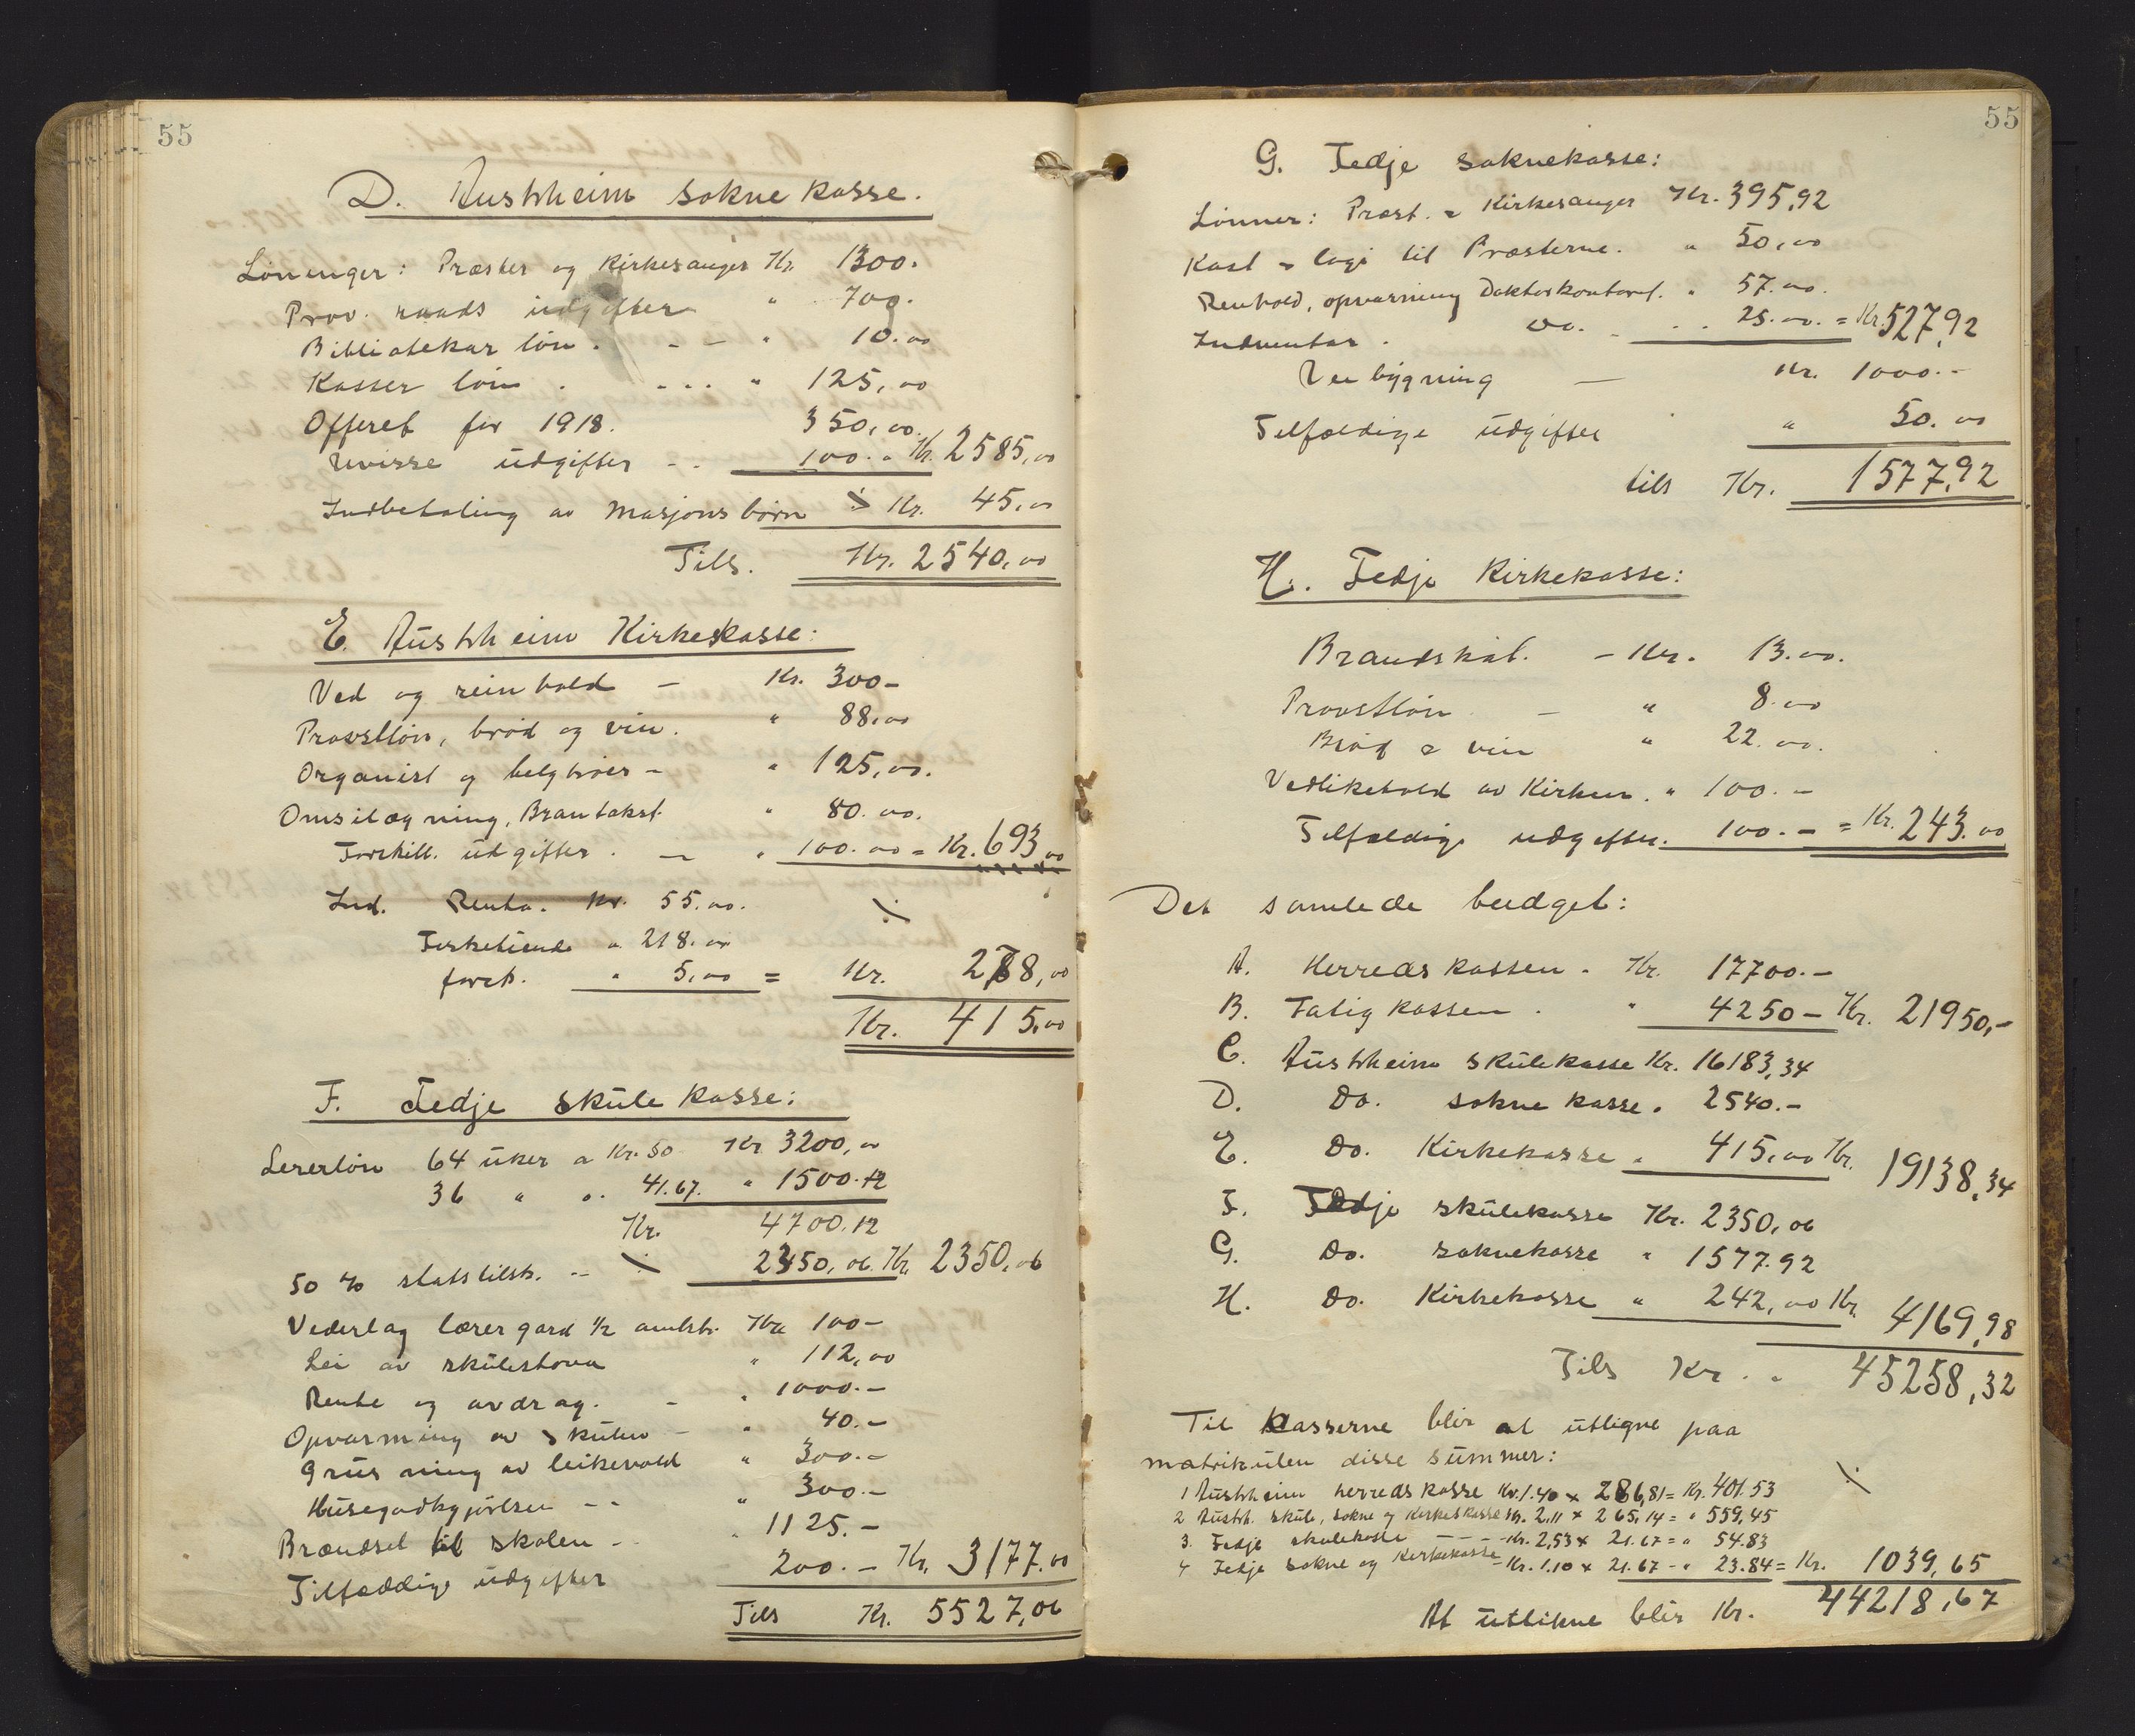 55
D. Austrheim sokne kasse.
Lönenger: Præster og Kirkesanger Kr. 1300.
Prov. raads udgifter " 700.
Bibliotekar lön. - - " 10.00
Kasser lön . . . . " 125,00
Offeret for 1918. 350,00.
Uvisse udgifter - - 100. " Kr. 2585,00
Indbetaling av Masjons börn ÷ Kr. 45,00
Tils. Kr. 2540,00
E. Austrheim Kirkeskasse:
Ved og reinhold - Kr. 300-
Provstlön, bröd og vin. " 88,00
Organist og belgtröer - " 125,00.
Omsilægning, Brantakst. " 80.00.
Forskill. utgifter . - " 100.00 = Kr. 693,00
Ind. Renta. Kr. 55.00. ÷
Fisketiende " 218.00
forsk. " 5,00 = Kr. 278,00
Kr. 415,00
F. Fedje skule kasse:
Lererlön 64 uker a Kr. 50 Kr 3200,00
36 " a. 41.67. " 1500.12
Kr. 4700.12
50 % statstilsk. - ÷ 2350,06. Kr. 2350,06
Vederlag lærer gard ½ amtsk. Kr. 100-
Lei av skülestova " 112,00
Rente og avdrag. - " 1000.-
Opvarming av skulen - " 40.-
Grüsning av leikevold " 300.-
Husegodtgjörelsen - - " 300.-
Brændsel til skolen - " 1125.-
Tilfældige udgifter 200.- Kr. 3177.00
Tils Kr. 5527,06
55
G. Fedje soknekasse:
Lönner: Præst. & Kirkesanger Kr. 395,92
Kost & logi til Præsterne. " 50,00
Renhold, opvarming Doktorkontoret. " 57.00.
Indventar. Do. - . . 25.00. = Kr. 527,92
Vei bygning - Kr. 1000.-
Tilfældige udgifter " 50.00
tils Kr. 1577,92
H. Fedje Kirkekasse:
Brandskat. - Kr. 13.00.
Provstlön - " 8.00
Bröd & vin " 22.00.
Vedlikehold av Kirken. " 100.-
Tilfældige udgifter. 100.- = Kr. 243.00
Det samlede budget:
A. Herredskassen. Kr. 17700.-
B. Fatigkassen. " 4250- Kr. 21950,-
C. Austrheim skulekasse Kr. 16183,34
D. Do. sokne kasse. 2540.-
E. Do. Kirkekasse " 415,00 Kr. 19138,34
F. Fedje skülekasse Kr. 2350,06
G. Do. soknekasse " 1577.92
H. Do. Kirkekasse " 242,00 Kr. 4169,98
Tils Kr. . 45258,32
Til kasserne blir at utligne paa
matrikulen disse summer: ÷
1 Austrheim herredskasse Kr. 1.40 x 286,81 = Kr. 401.53
2 Austrh. skule, sokne og Kirkeskasse Kr. 2,11 x 265,14 = " 559,45
3. Fedje skulekasse - - - - Kr. 2,53 x 21.67 = " 54.83
4 Fedje sokne og Kirkekasse - Kr. 1.10 x 21.67 - " 23.84 = Kr. 1039,65
At utlikne blir Kr. 44218,67